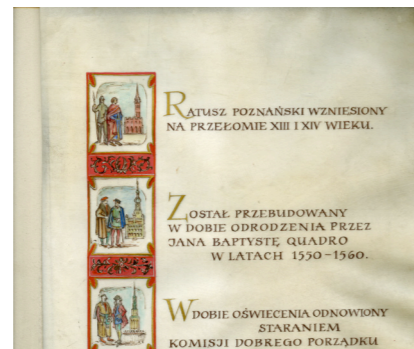 RATUSZ POZNAŃSKI WZNIESIONY
NA PRZEŁOMIE XIII I XIV WIEKU.
ZOSTAŁ PRZEBUDOWANY
W DOBIE ODRODZENIA PRZEZ
JANA BAPTYSTĘ QUADRO
W LATACH 1550-1560.
W DOBIE OŚWIECENIA ODNOWIONY
STARANIEM
KOMISJI DOBREGO PORZĄDKU